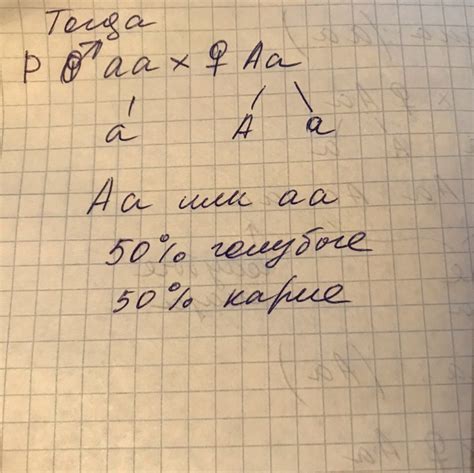 Тогда
P ♂ aa × ♀ Aa
a A a
Aa или aa
50% голубые
50% карие